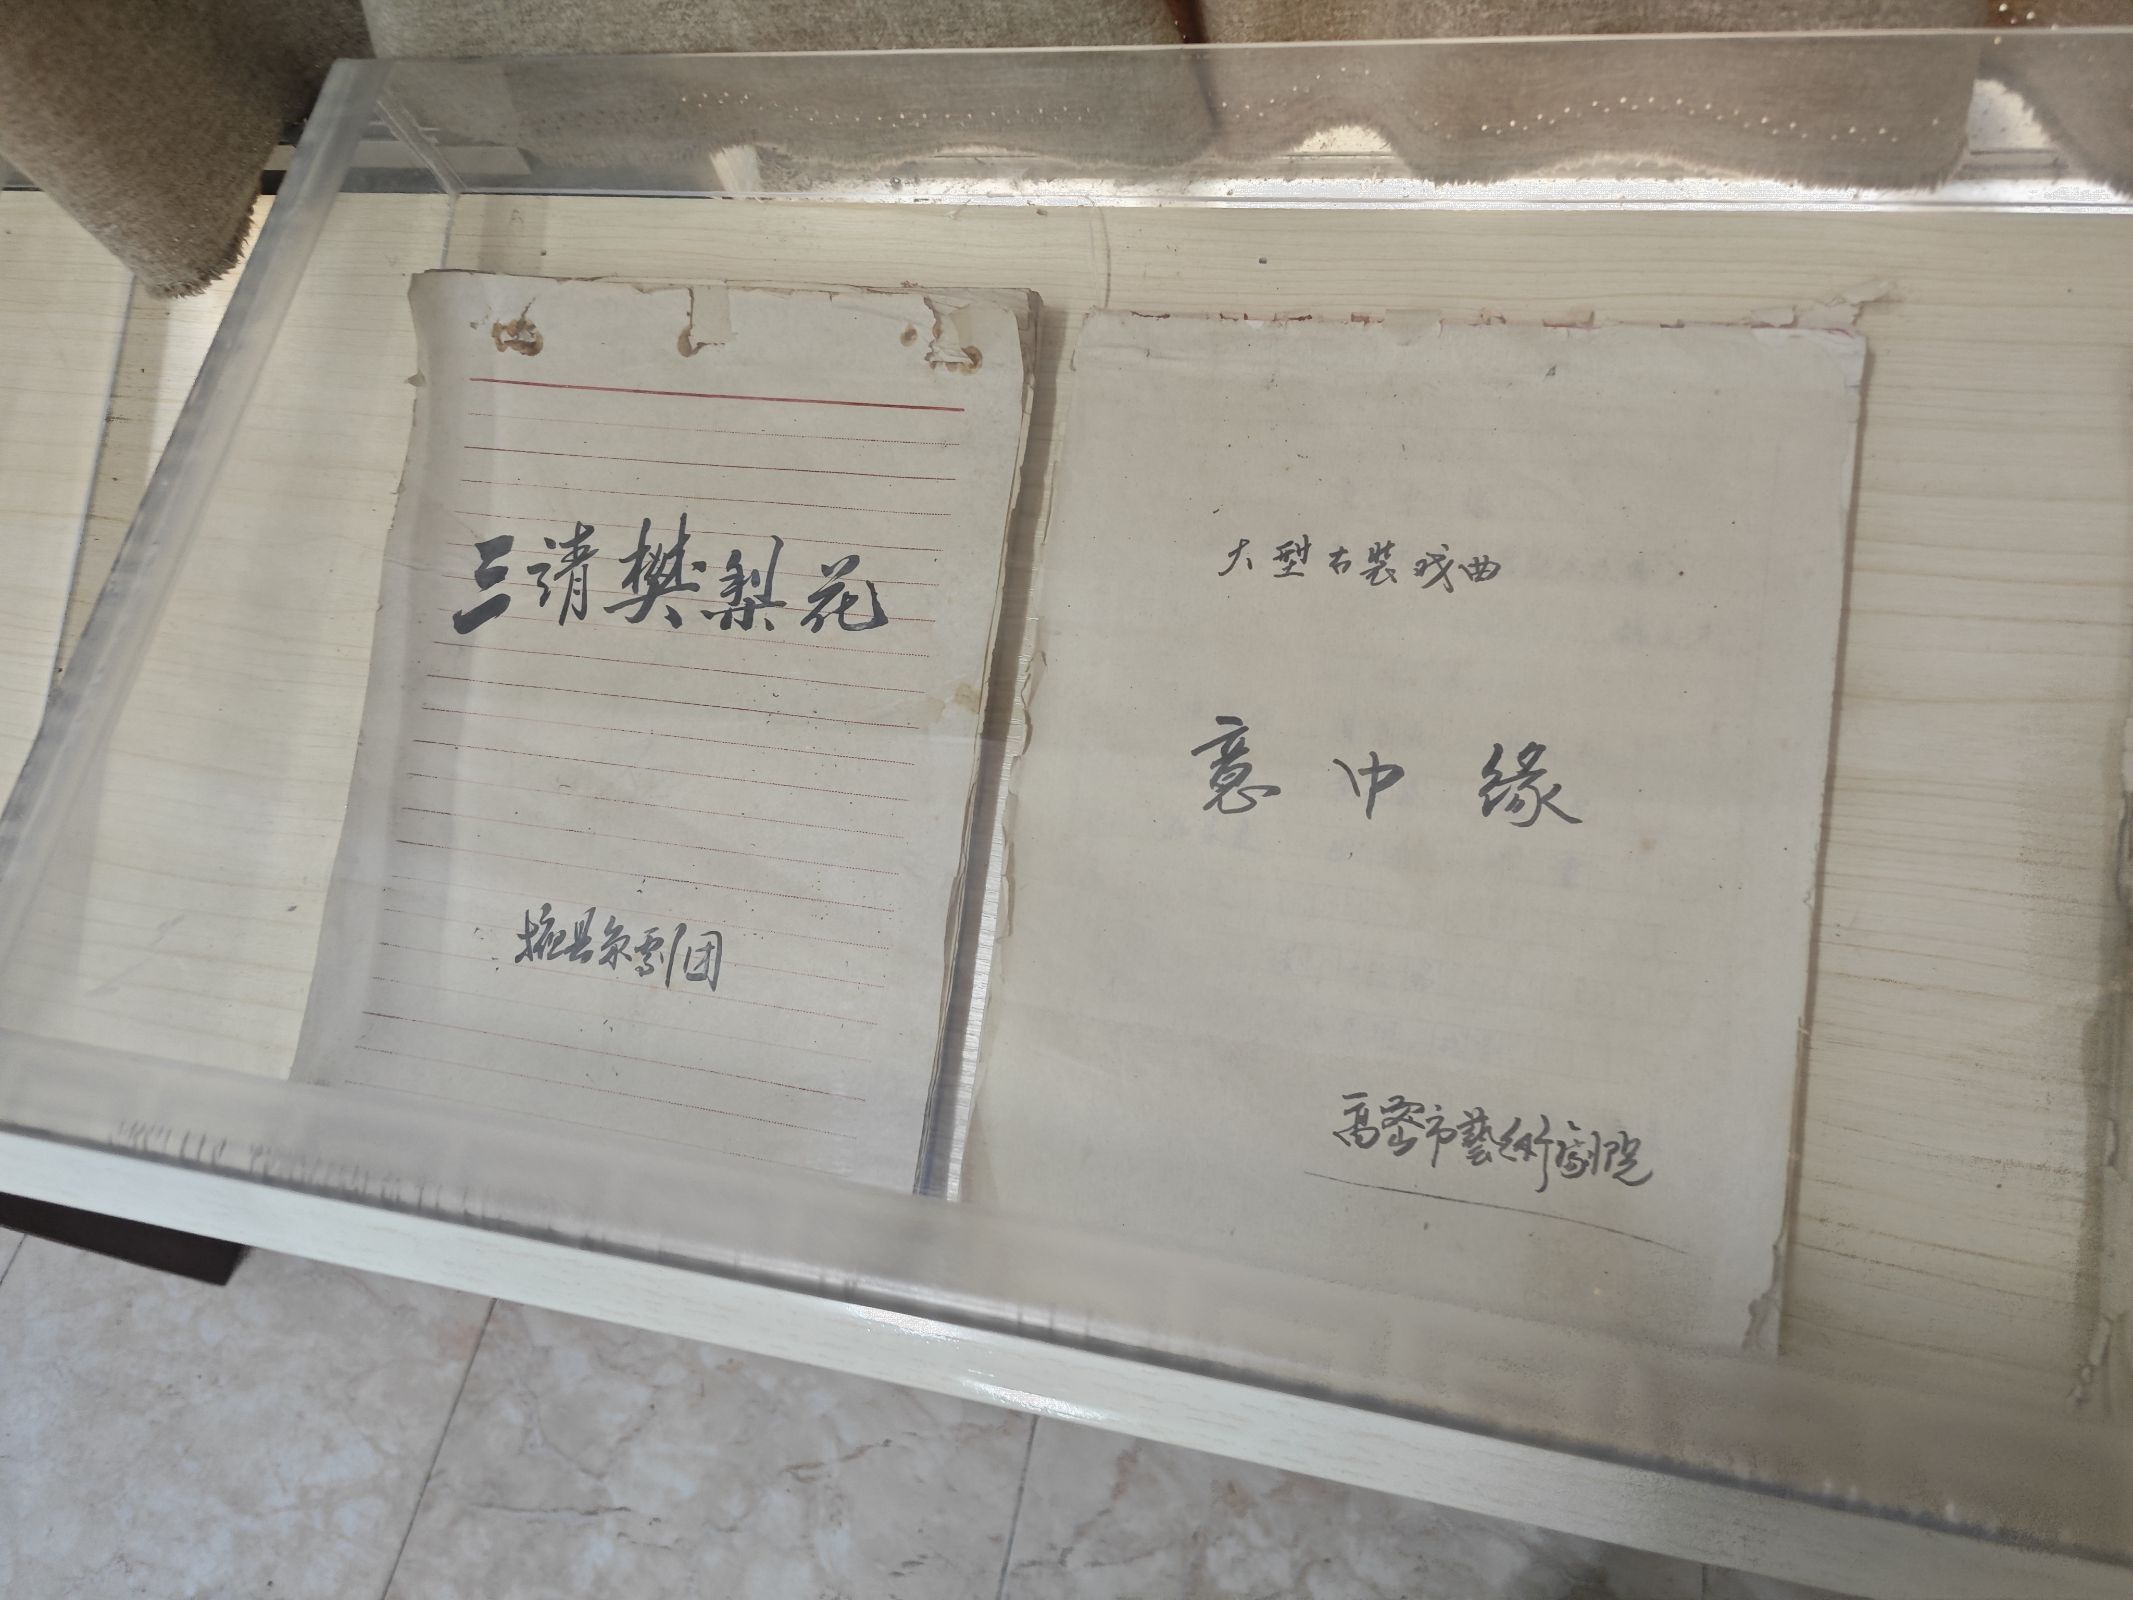 三请樊梨花
掖县京劇团
大型古装戏曲
意中缘
高密市藝術劇院